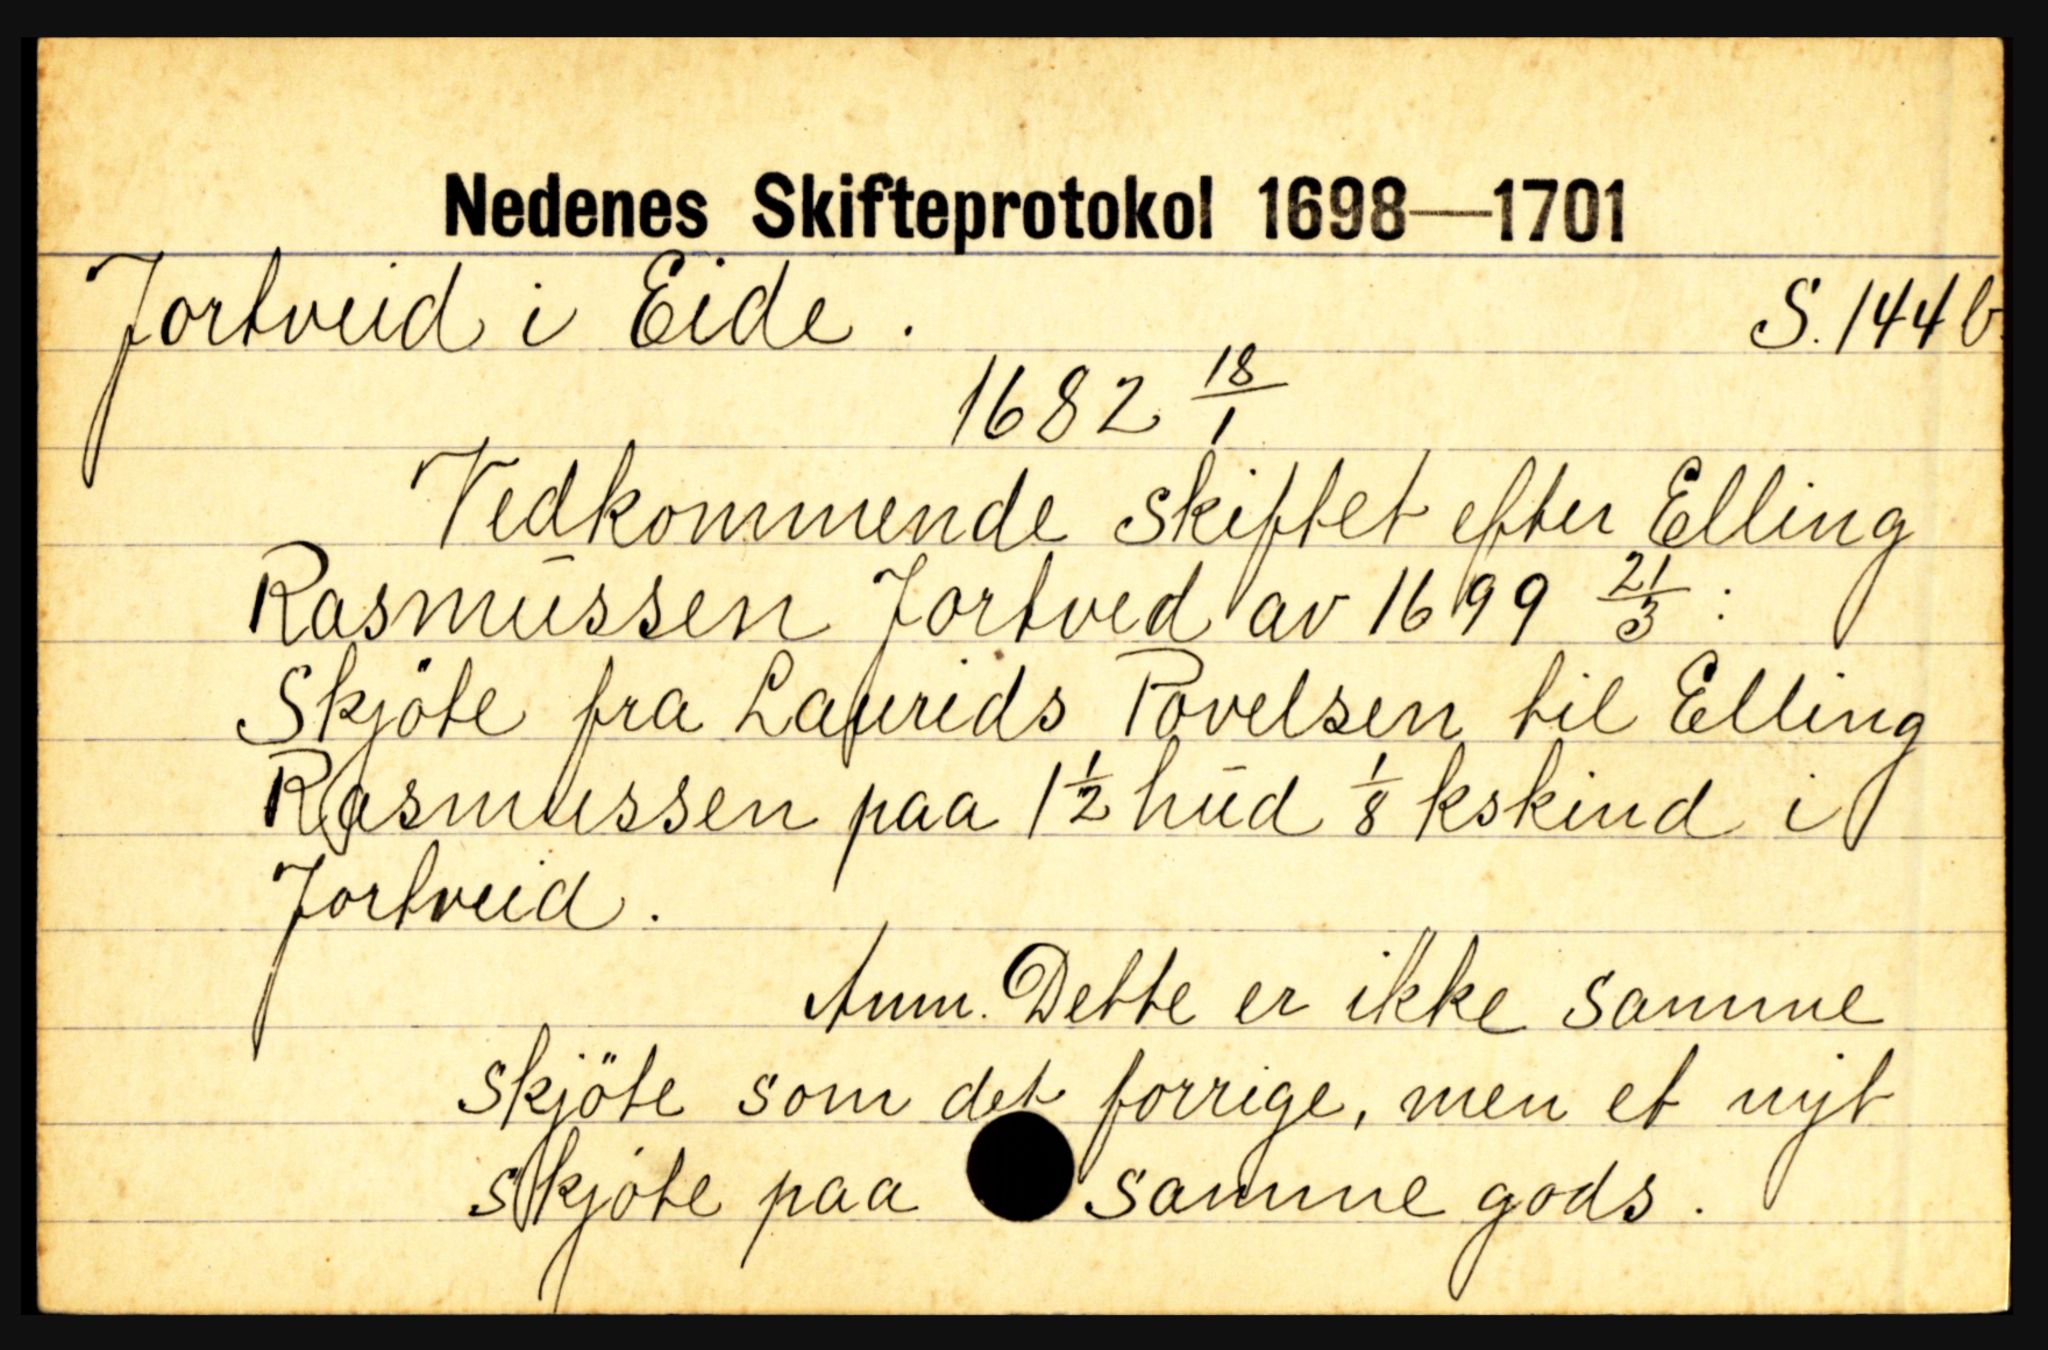 Nedenes Skifteprotokol 1698—1701
Jortveid i Eide. S. 144 b.
1682 18/1
Vedkommende skiftet efter Elling
Rasmussen Jortved av 1699 21/3:
Skjöte fra Laurids Povelsen til Elling
Rasmussen paa 1 1/2 hud 1/8 kskind i
Jortveid.
Anm. Dette er ikke samme
skjöte som det forrige, men et nyt
skjöte paa samme gods.